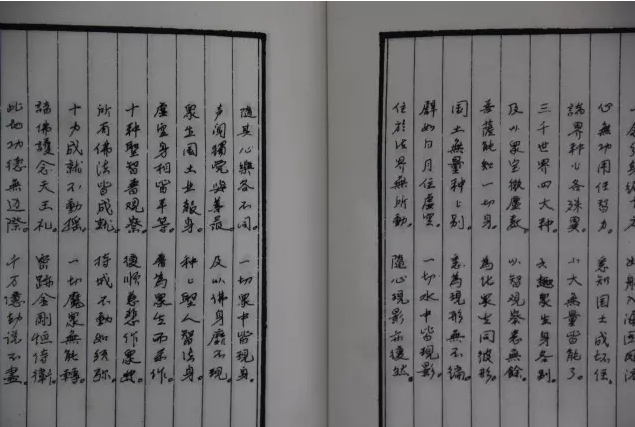 心無功用任智力。悉知国土成坏住。
諸界种々各殊異。小大無量皆能了。
三千世界四大种。六趣衆生身各别。
及以衆宝微塵数。以智观察悉無餘。
菩薩能知一切身。為化衆生同彼形。
国土無量种々别。悉為現形無不徧。
譬如日月住虚空。一切水中皆現影。
住於法界無所動。隨心現影亦復然。
隨其心樂各不同。一切衆中皆現身。
声闻獨覺與菩薩。及以佛身靡不現。
衆生国土业報身。种々聖人智法身。
虚空身相皆平等。普為衆生而示作。
十种聖智普觀察。復順慈悲作衆業。
所有佛法皆成就。持戒不動如须弥。
十力成就不動摇。一切魔衆無能轉。
諸佛護念天王礼。密跡金剛恒侍衛。
此地功德無边際。千万億劫説不盡。